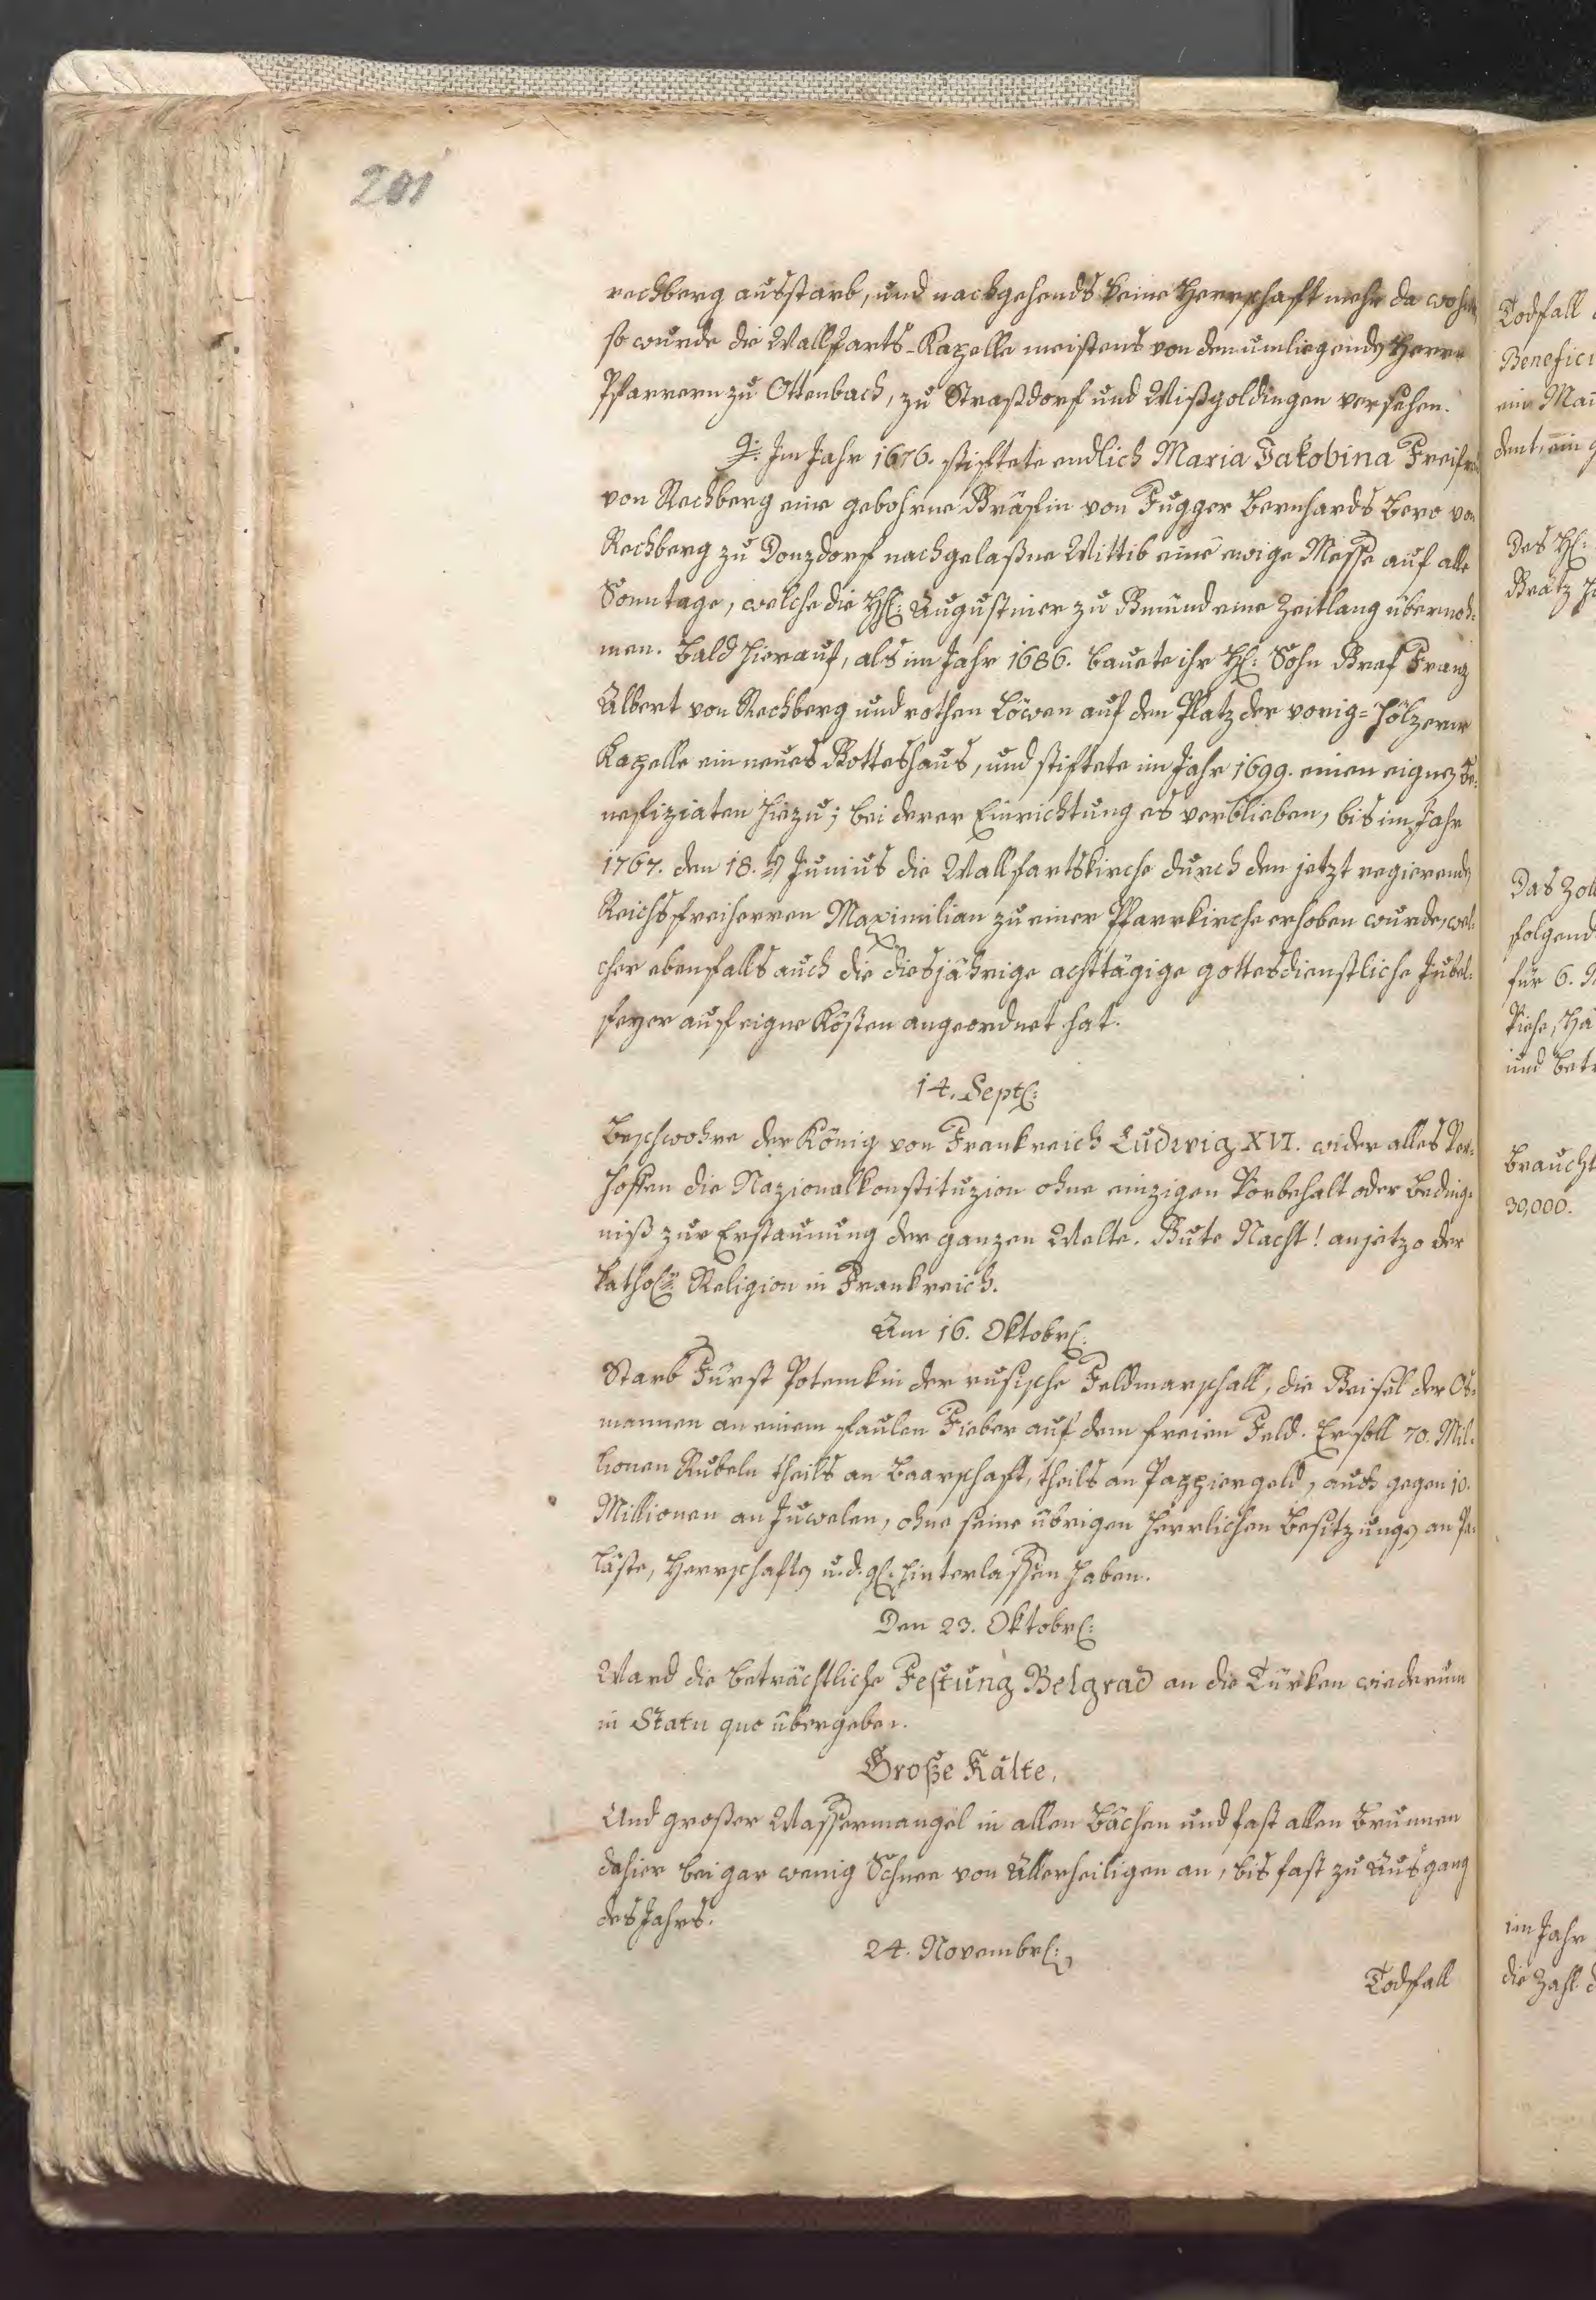 201
rechberg ausstarb, und nachgehends keine Herrschaft mehr da wohnte
so wurde die Wallfarts-Kapelle meistens von den umliegenden Herrn
Pfarrern zu Ottenbach, zu Straßdorf und Wißgoldingen versehen.
Im Jahr 1676. stiftete endlich Maria Jakobina Freifrau
von Rechberg eine gebohrne Gräfin von Fugger Bernhards Bero von
Rechberg zu Donzdorf nachgelaßne Wittib eine ewige Messe auf alle
Sonntage, welche die HH: Augustiner zu Gmünd eine Zeitlang übernoh-
men. Bald hierauf, als im Jahr 1686. bauete ihr H: Sohn Graf Franz
Albert von Rechberg und rothen Löwen auf den Platz der vorig= hölzerne
Kapelle ein neues Gotteshaus, und stiftete im Jahr 1699. einen eignen Be-
nefiziaten hiezu; bei derer Einrichtung es verblieben, bis im Jahr
1767. den 18.ten Junius die Wallfartskirche durch den jetzt regierenden
Reichsfreiherren Maximilian zu einer Pfarrkirche erhoben wurde, wel-
cher ebenfalls auch die diesjährige achttägige gottesdienstliche Jubel-
feyer auf eigne Kösten angeordnet hat.
14. Sept:
Beschwohre der König von Frankreich Ludwig XVI. wider alles Ver-
hoffen die Nazionalkonstituzion ohne einzigen Vorbehalt oder Beding-
niß zur Erstaunung der ganzen Welte. Gute Nacht! anjetzo der
kathol: Religion in Frankreich.
Am 16. Oktobr:
Starb Fürst Potemkin der rusische Feldmarschall, die Geisel der Os-
mannen an einem faulen Fieber auf dem freien Feld. Er soll 70. Mil-
lionen Rubeln theils an Baarschaft, theils an Pappiergeld, auch gegen 10.
Millionen an Juwelen, ohne seine übrigen herrlichen Besitzungen an Pa-
läste, Herrschaften u.d.gl: hinterlassen haben.
Den 23. Oktobr:
Ward die beträchtliche Festung Belgrad an die Türken wiederum
in Statu quo übergeben.
Große Kälte,
Und großer Wassermangel in allen Bächen und fast allen Brunnen
dahier bei gar wenig Schnee von Allerheiligen an, bis fast zu Ausgang
des Jahrs.
24. Novembr:
Todfall
Todfall
Benefici
ein
dent, ein
Des H:
Das Zoll
folgend
für 6.
und
Braucht
30,000.
im Jahr
die Zahl